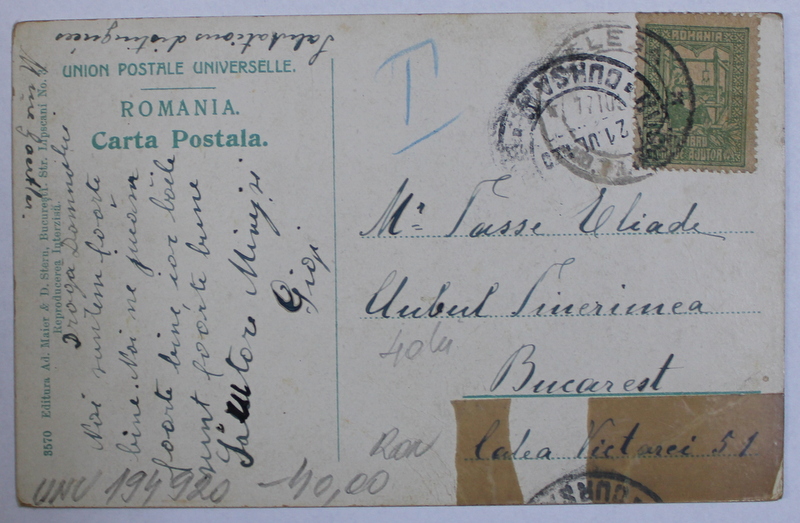 UNION POSTALE UNIVERSELLE.
ROMANIA.
Carta Postala.
3570 Editura Ad. Maier & D. Stern, București. Str. Lipscani No.
Reproducerea Interzisă.
Salutations distinguées
Droga Domnule
Noi suntem foarte
bine. Noi ne jucam
foarte bine iar băile
sunt foarte bune
Salutare
Gigi
I
ROMANIA
TIMBRU
DE AJUTOR
CURSA
21 IUL
Mr Tasse Eliade
Clubul Tinerimea
Bucarest
Calea Victoriei 51
40 lei
Rom
UNV 194920 -40,00
CURS